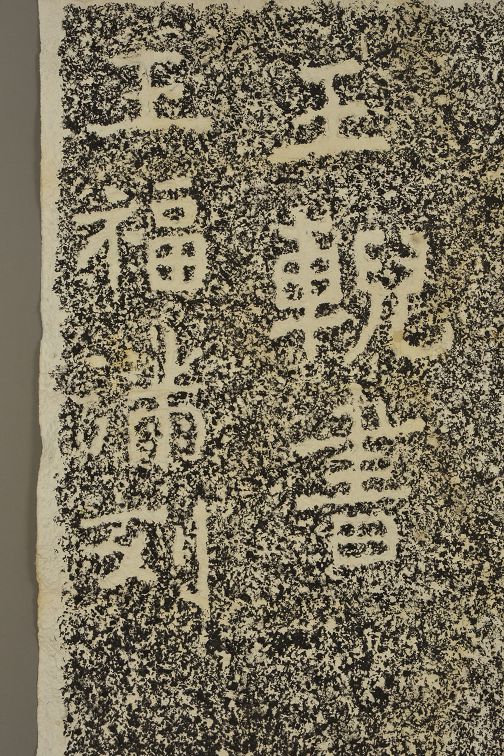 王輗書
王福刻